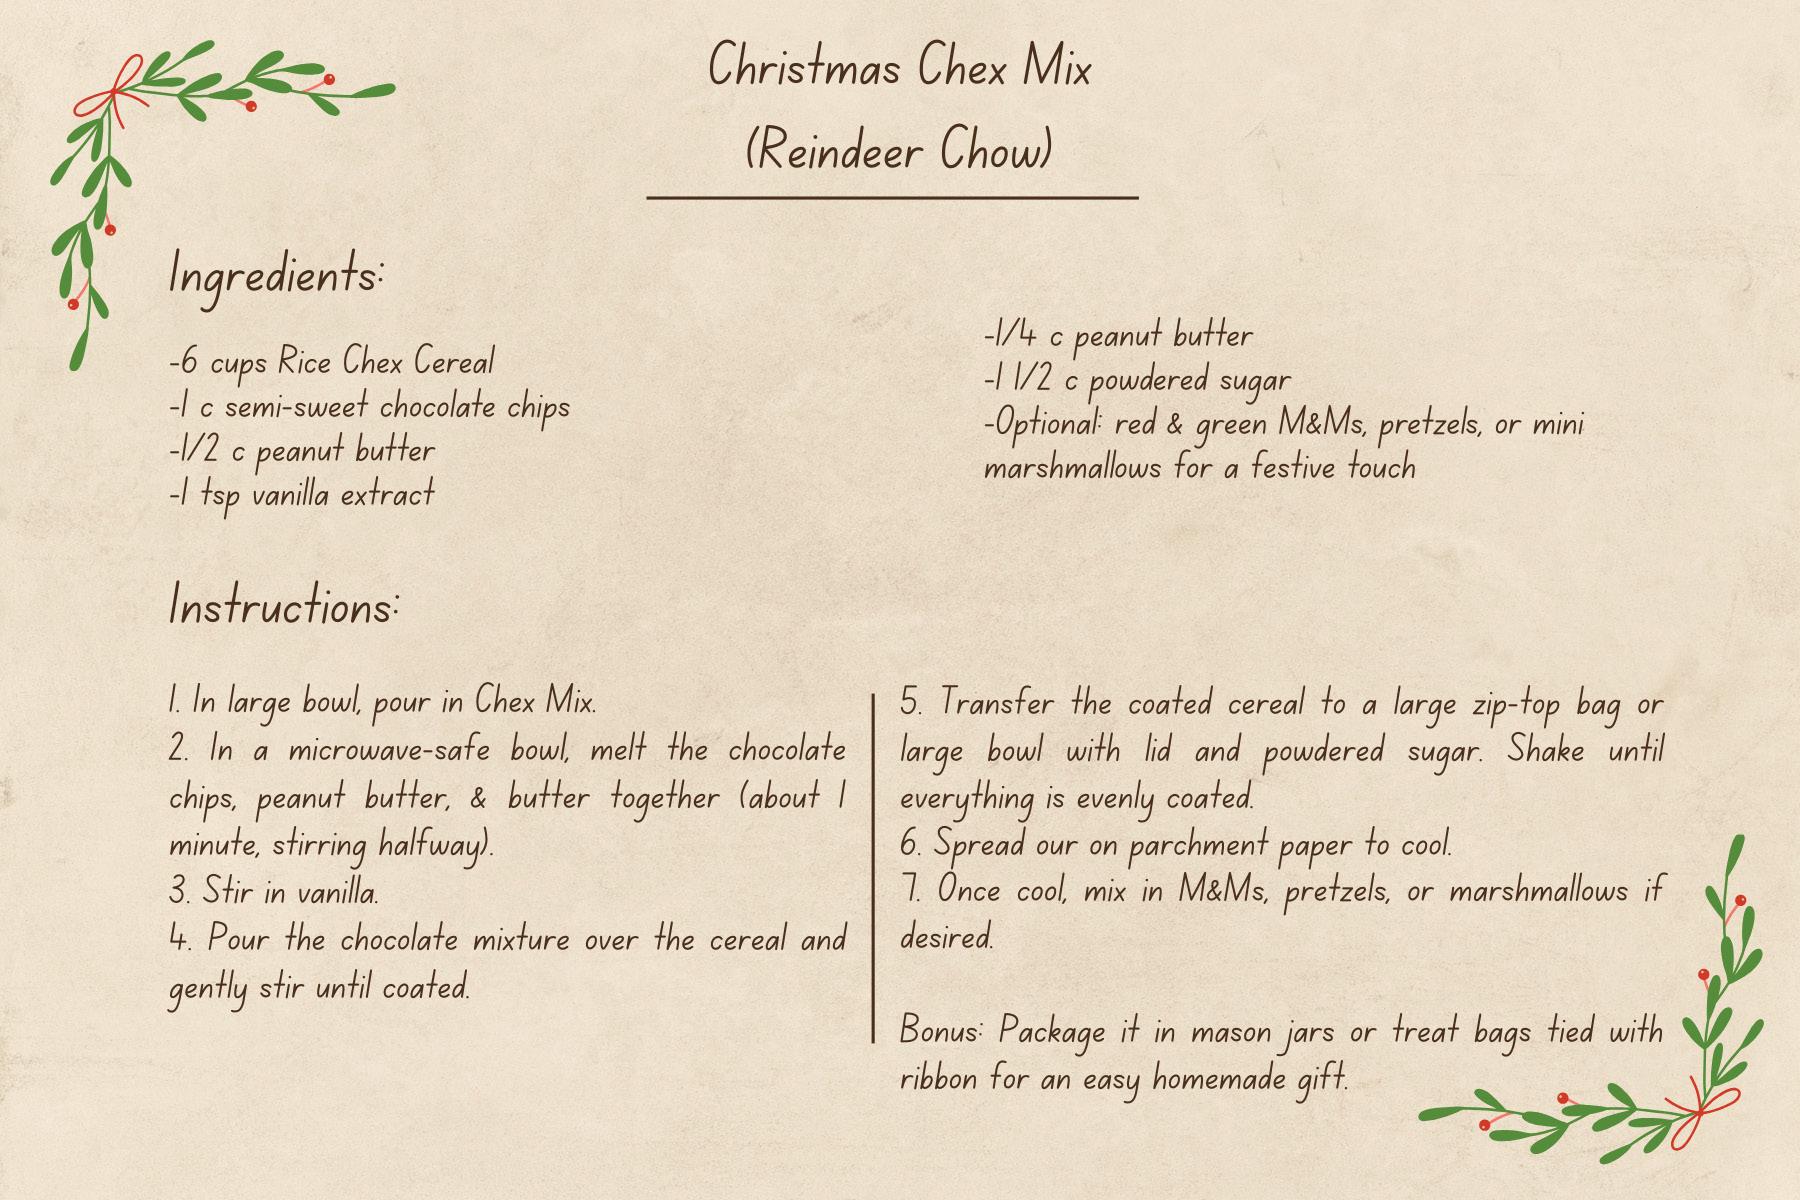 Christmas Chex Mix
(Reindeer Chow)
Ingredients:
-6 cups Rice Chex Cereal
-1 c semi-sweet chocolate chips
-1/2 c peanut butter
-1 tsp vanilla extract
-1/4 c peanut butter
-1 1/2 c powdered sugar
-Optional: red & green M&Ms, pretzels, or mini
marshmallows for a festive touch
Instructions:
1. In large bowl, pour in Chex Mix.
2. In a microwave-safe bowl, melt the chocolate
chips, peanut butter, & butter together (about 1
minute, stirring halfway).
3. Stir in vanilla.
4. Pour the chocolate mixture over the cereal and
gently stir until coated.
5. Transfer the coated cereal to a large zip-top bag or
large bowl with lid and powdered sugar. Shake until
everything is evenly coated.
6. Spread our on parchment paper to cool.
7. Once cool, mix in M&Ms, pretzels, or marshmallows if
desired.
Bonus: Package it in mason jars or treat bags tied with
ribbon for an easy homemade gift.